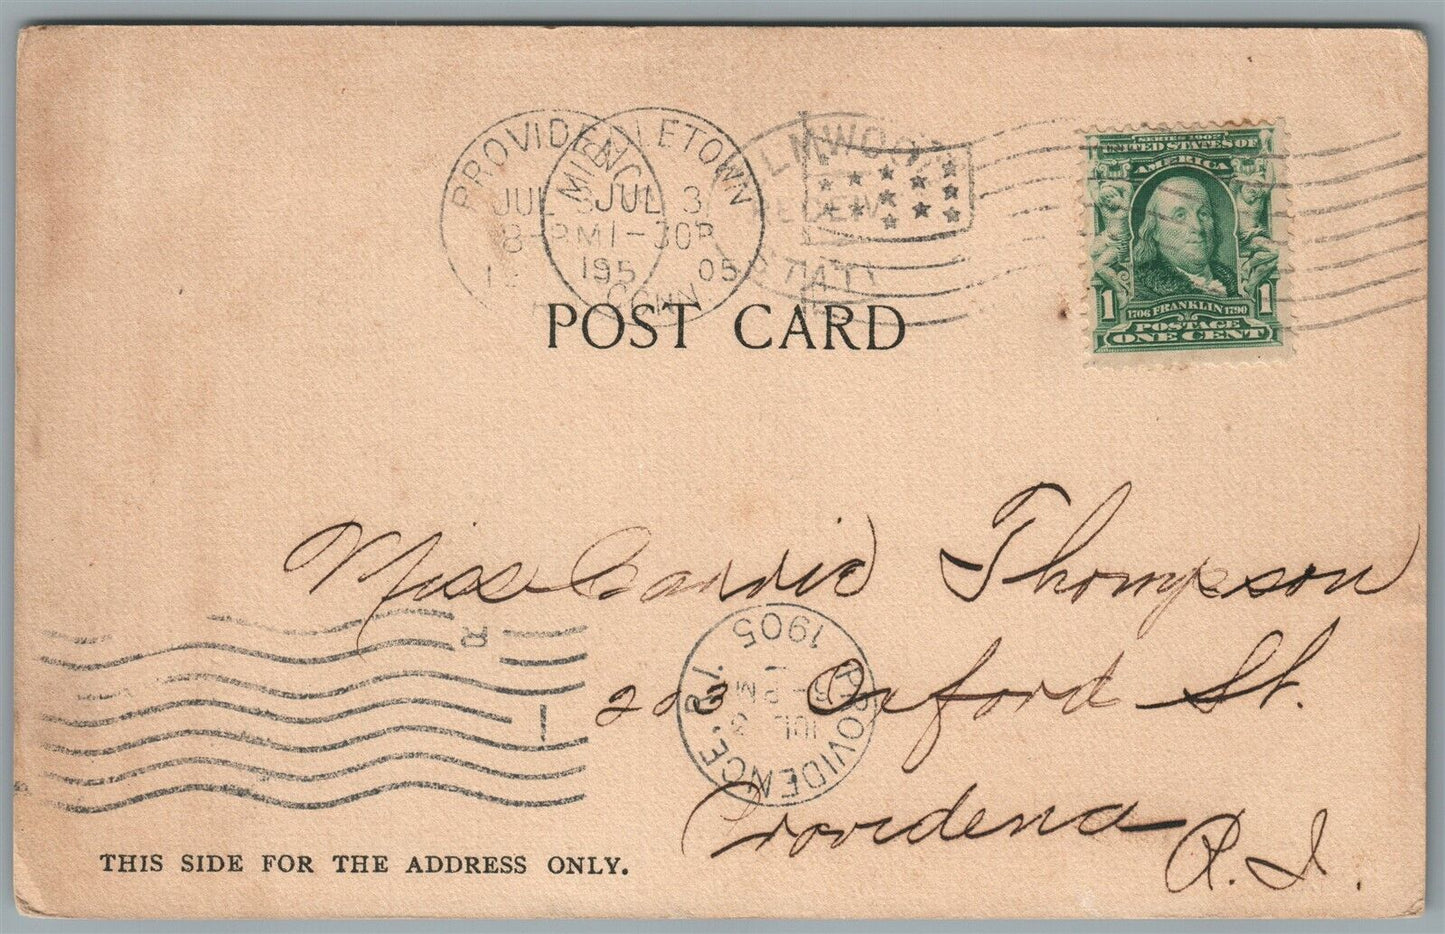 PROVIDENCE
JUL 3
8-PM
MIDDLETOWN
JUL 3
1-30P
1905
CONN
ELMWOOD
RECEIVED
STATION
SERIES 1902
UNITED STATES OF
AMERICA
1 1
1706 FRANKLIN 1790
POSTAGE
ONE CENT
POST CARD
Miss Carrie Thompson
203 Oxford St.
Providence
R.I.
PROVIDENCE, R.I.
JUL 3
PM
1905
R
I
THIS SIDE FOR THE ADDRESS ONLY.